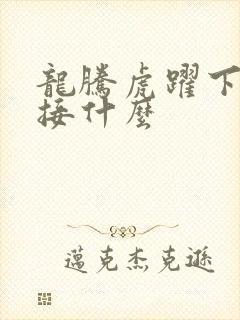 龍騰虎躍下
接什麼
邁克杰克遜